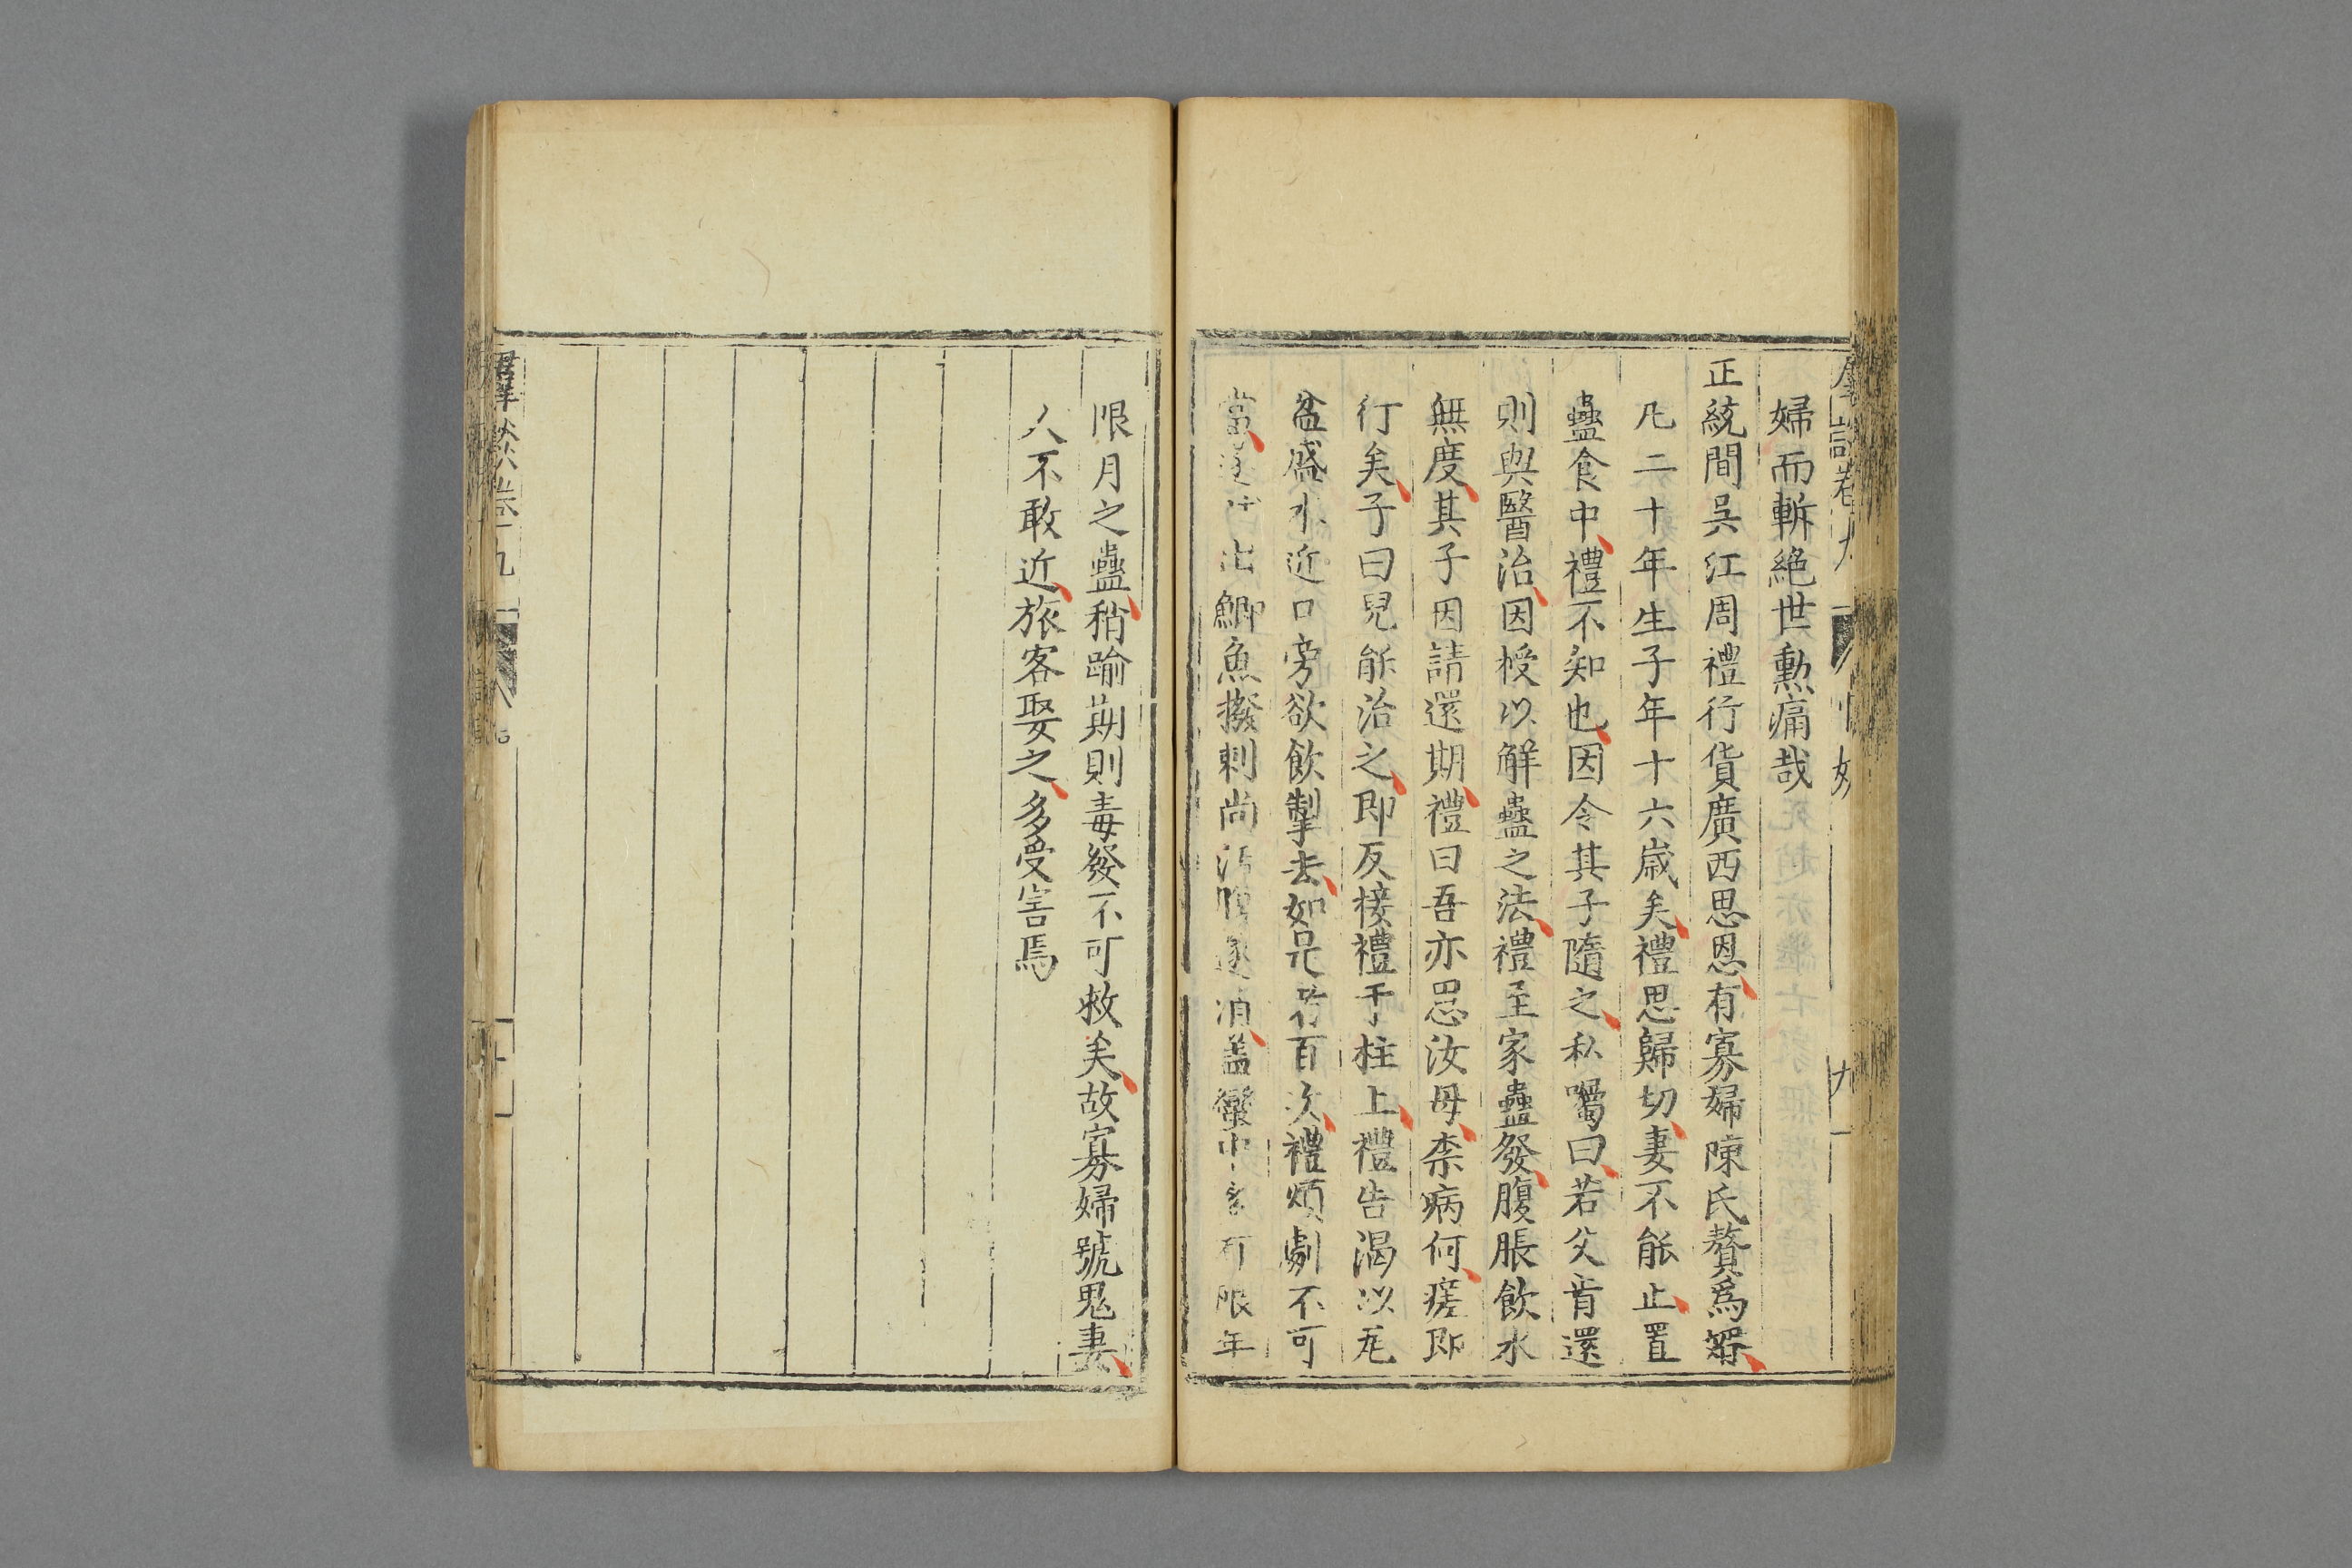 婦而斬絶世勲痛哉
正統間吳江周禮行貨廣西思恩有寡婦陳氏贅爲壻
凡二十年生子年十六歳矣禮思歸切妻不能止置
蠱食中禮不知也因令其子隨之私囑曰若父肯還
則與醫治因授以解蠱之法禮至家蠱發腹脹飲水
無度其子因請還期禮曰吾亦思汝母柰病何瘥即
行矣子曰兒能治之即反接禮于柱上禮告渴以瓦
盆盛水近口旁欲飲掣去如是者百次禮煩劇不可
當 出鯽魚撥刺尚活 遂消盖蠻中 有限年
限月之蠱稍踰期則毒發不可救矣故寡婦號鬼妻
人不敢近旅客娶之多受害焉